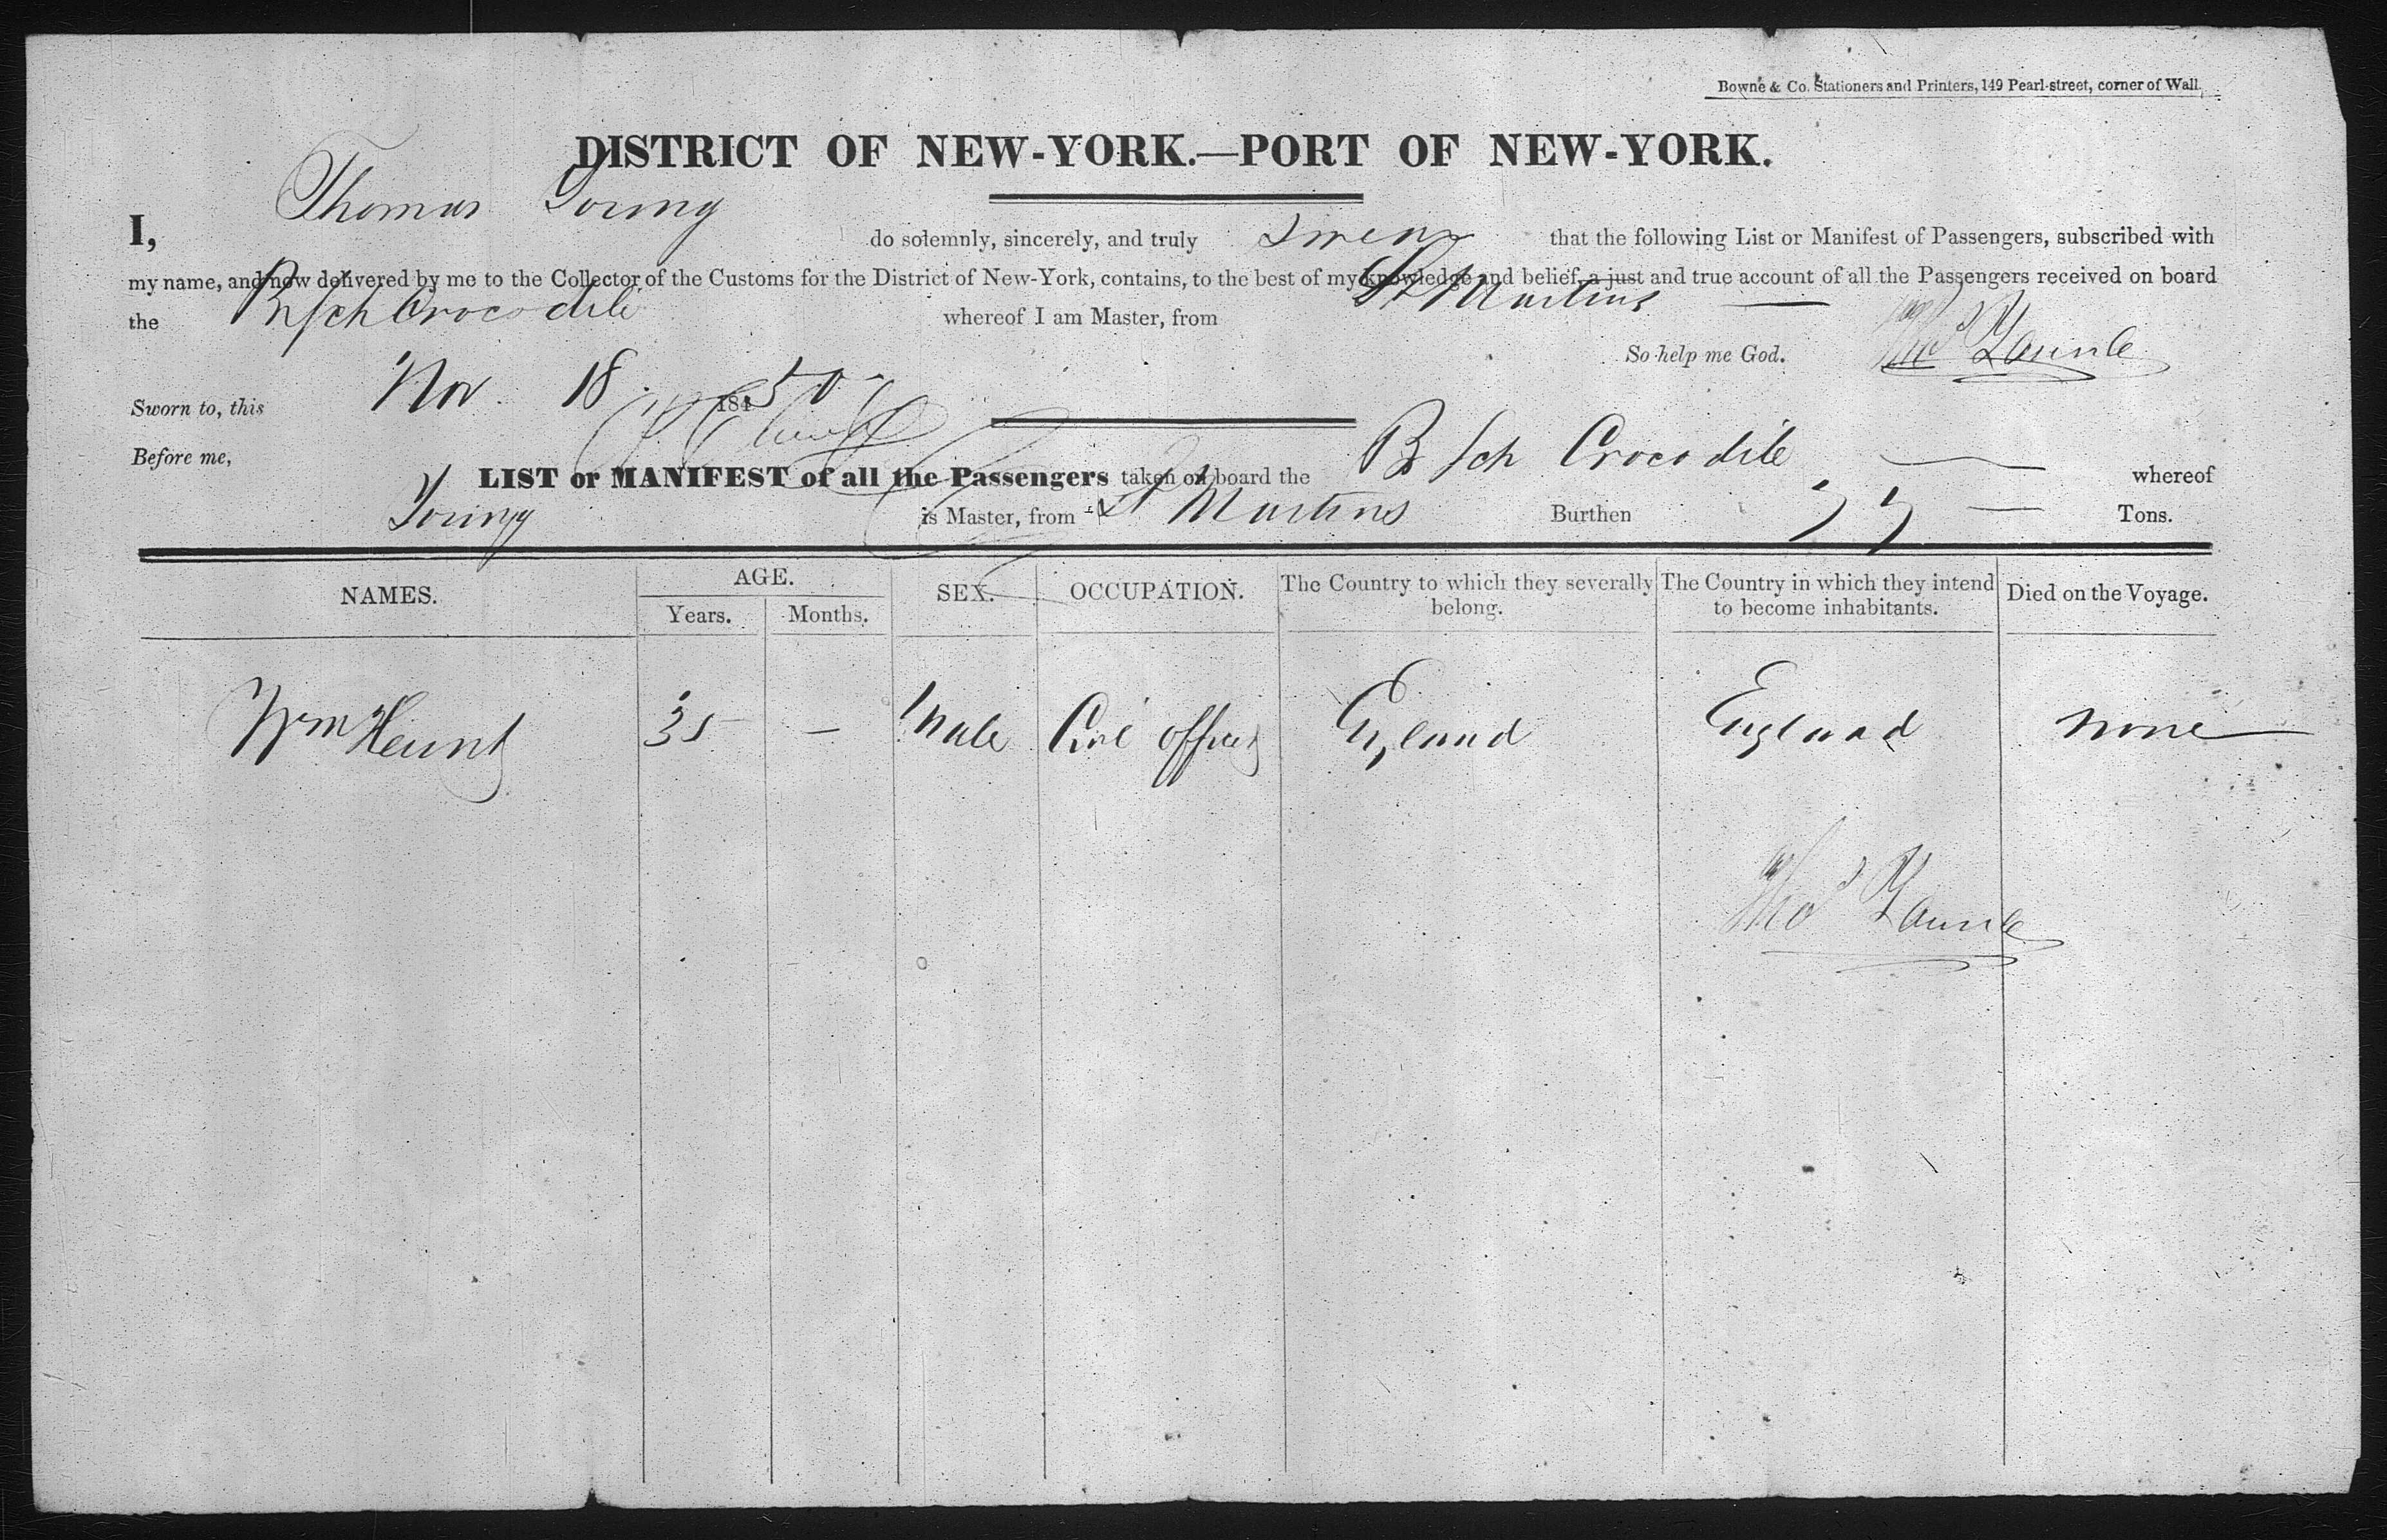 Bowne & Co. Stationers and Printers, 149 Pearl-street, corner of Wall.
DISTRICT OF NEW-YORK.—PORT OF NEW-YORK.
I, Thomas Young do solemnly, sincerely, and truly swear that the following List or Manifest of Passengers, subscribed with
my name, and now delivered by me to the Collector of the Customs for the District of New-York, contains, to the best of my knowledge and belief, a just and true account of all the Passengers received on board
the Br Sch Crocodile whereof I am Master, from St Martins —
So help me God. Thos
Sworn to, this Nov 18 1850
Before me,
LIST or MANIFEST of all the Passengers taken on board the Br Sch Crocodile — whereof
Young is Master, from St Martins Burthen 77 — Tons.
NAMES. AGE. SEX. OCCUPATION. The Country to which they severally belong. The Country in which they intend to become inhabitants. Died on the Voyage.
Years. Months.
Wm 35 — Male Civil officer England England none
Thos